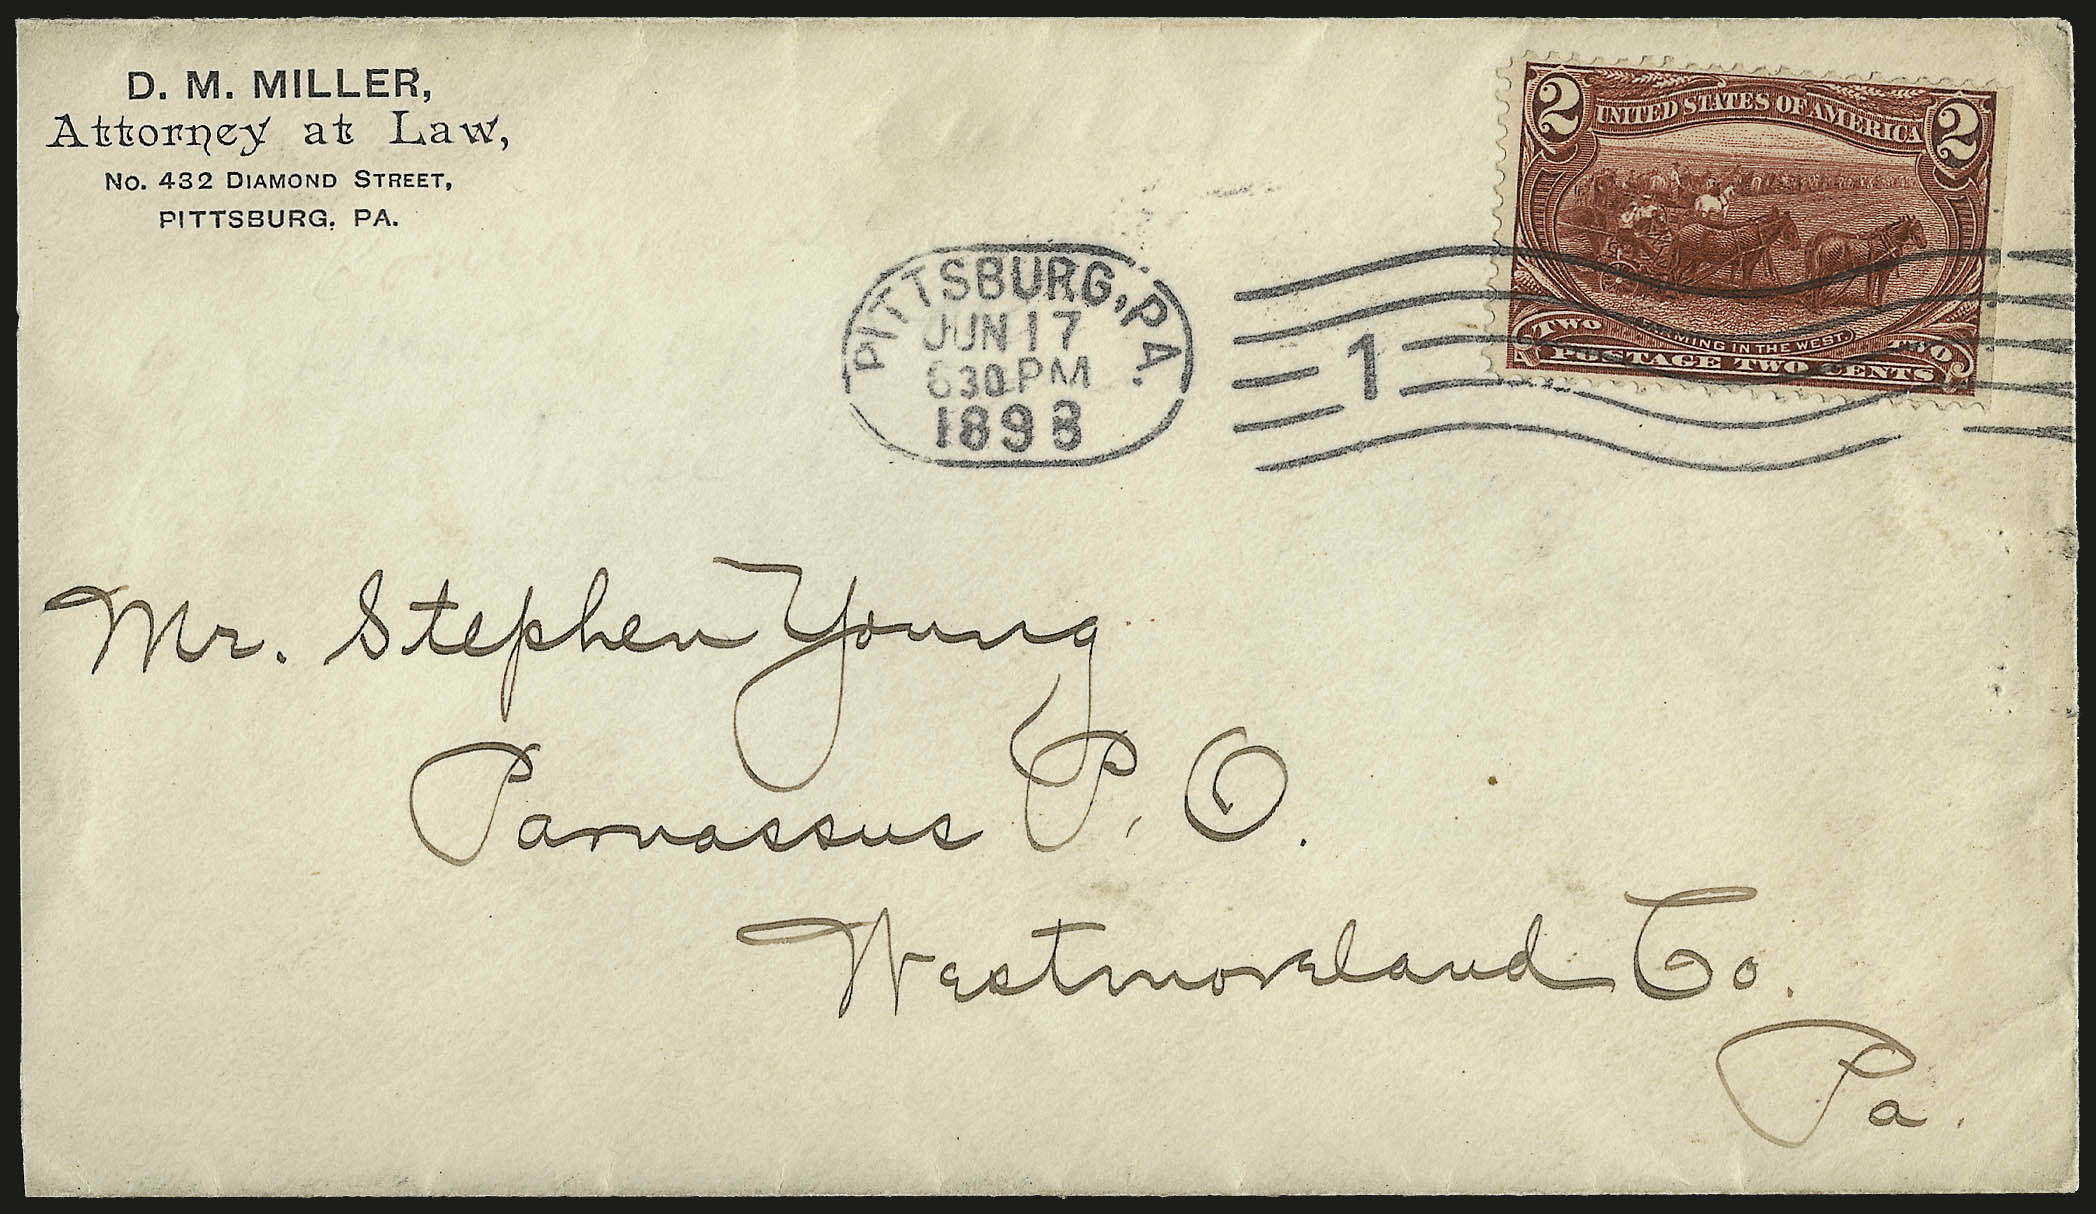 D. M. MILLER,
Attorney at Law,
No. 432 DIAMOND STREET,
PITTSBURG, PA.
PITTSBURG, PA.
JUN 17
630 PM
1898
1
2 UNITED STATES OF AMERICA 2
FARMING IN THE WEST.
TWO TWO
POSTAGE TWO CENTS
Mr. Stephen Young
Parnassus P. O.
Westmoreland Co.
Pa.